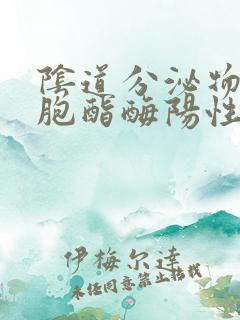 陰道分泌物
胞酯酶陽性
伊梅尔達
未经同意禁止转载